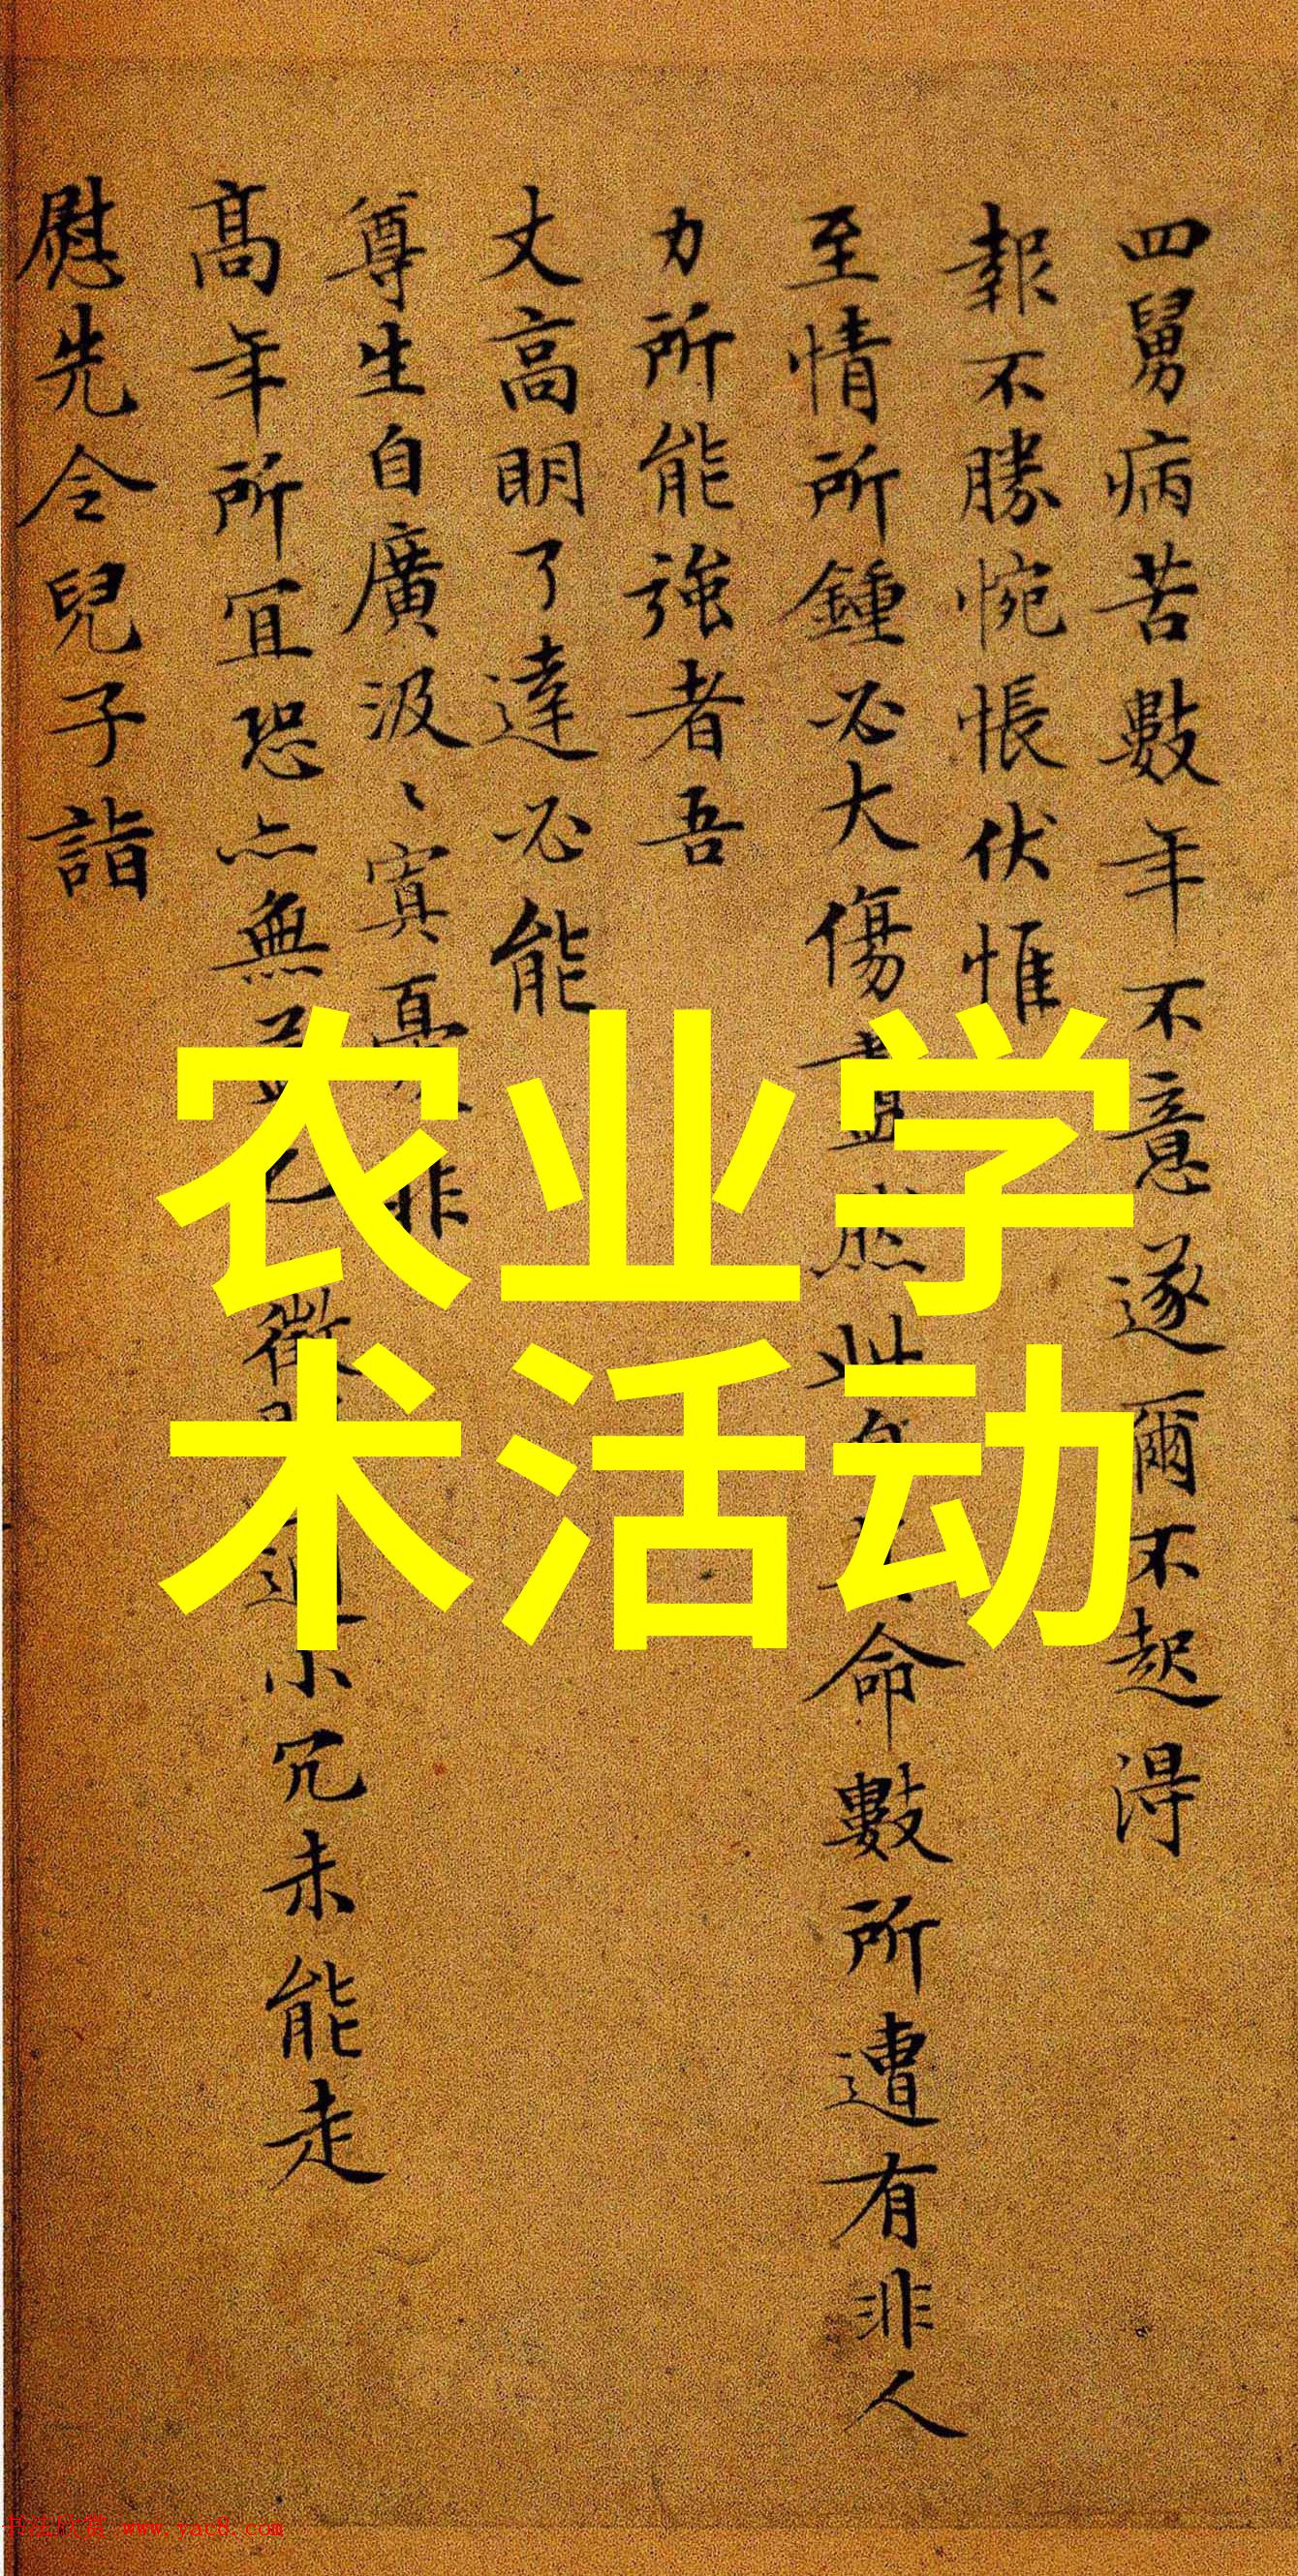 四舅病苦數年不意遂爾不起得
報不勝惋悵伏惟
至情所鍾必大傷盡然此自命數所遭有非人
力所能強者吾
丈高明了達必能
尊生自廣汲〻寘哀非
高年所宜恐亦無益也小冗未能走
慰先令兒子詣
农业学
术活动
www.yac8.com